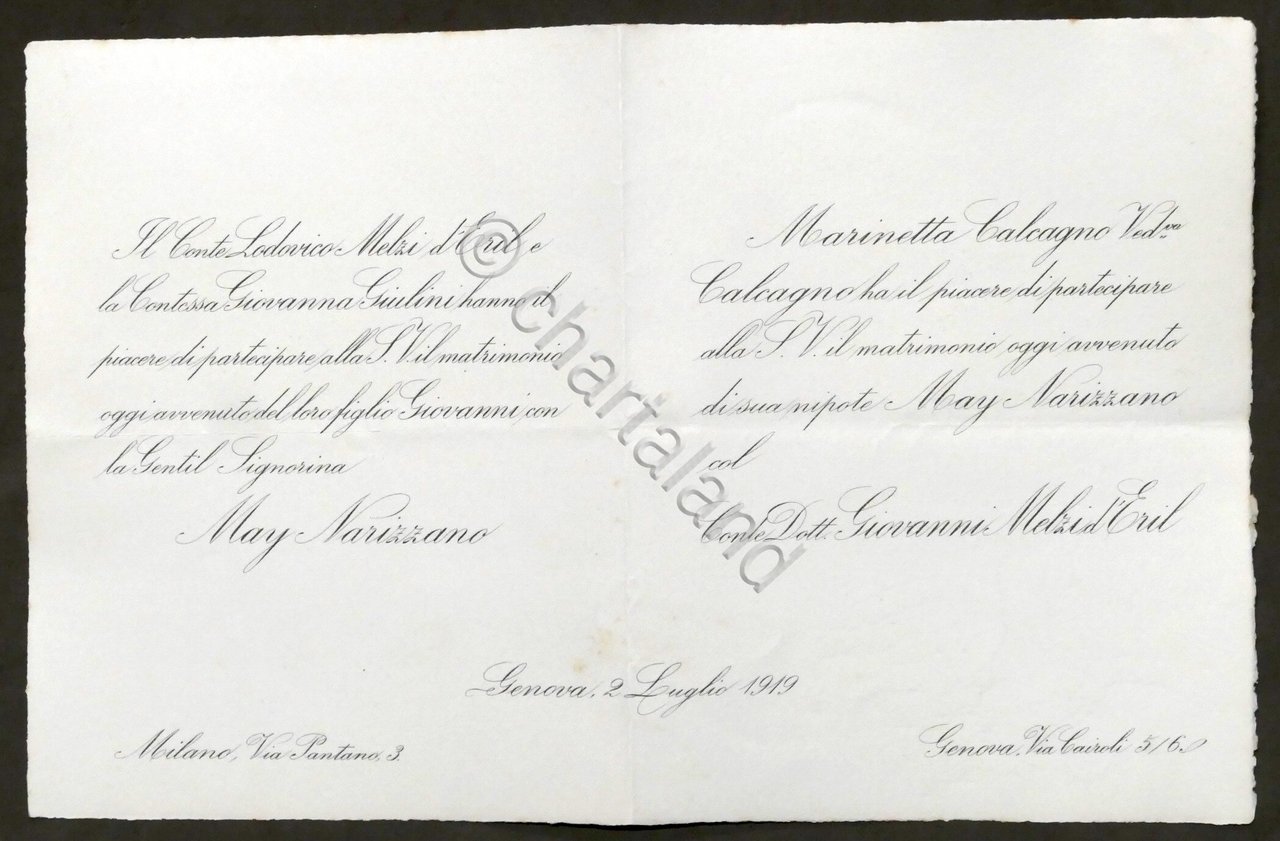 Il Conte Lodovico Melzi d'Eril e
la Contessa Giovanna Giulini hanno il
piacere di partecipare alla S. V. il matrimonio
oggi avvenuto del loro figlio Giovanni con
la Gentil Signorina
May Narizzano
Marinetta Calcagno Ved.va
Calcagno ha il piacere di partecipare
alla S. V. il matrimonio oggi avvenuto
di sua nipote May Narizzano
col
Conte Dott. Giovanni Melzi d'Eril
Genova, 2 Luglio 1919
Milano, Via Pantano, 3
Genova, Via Cairoli 5/6
© chartaland